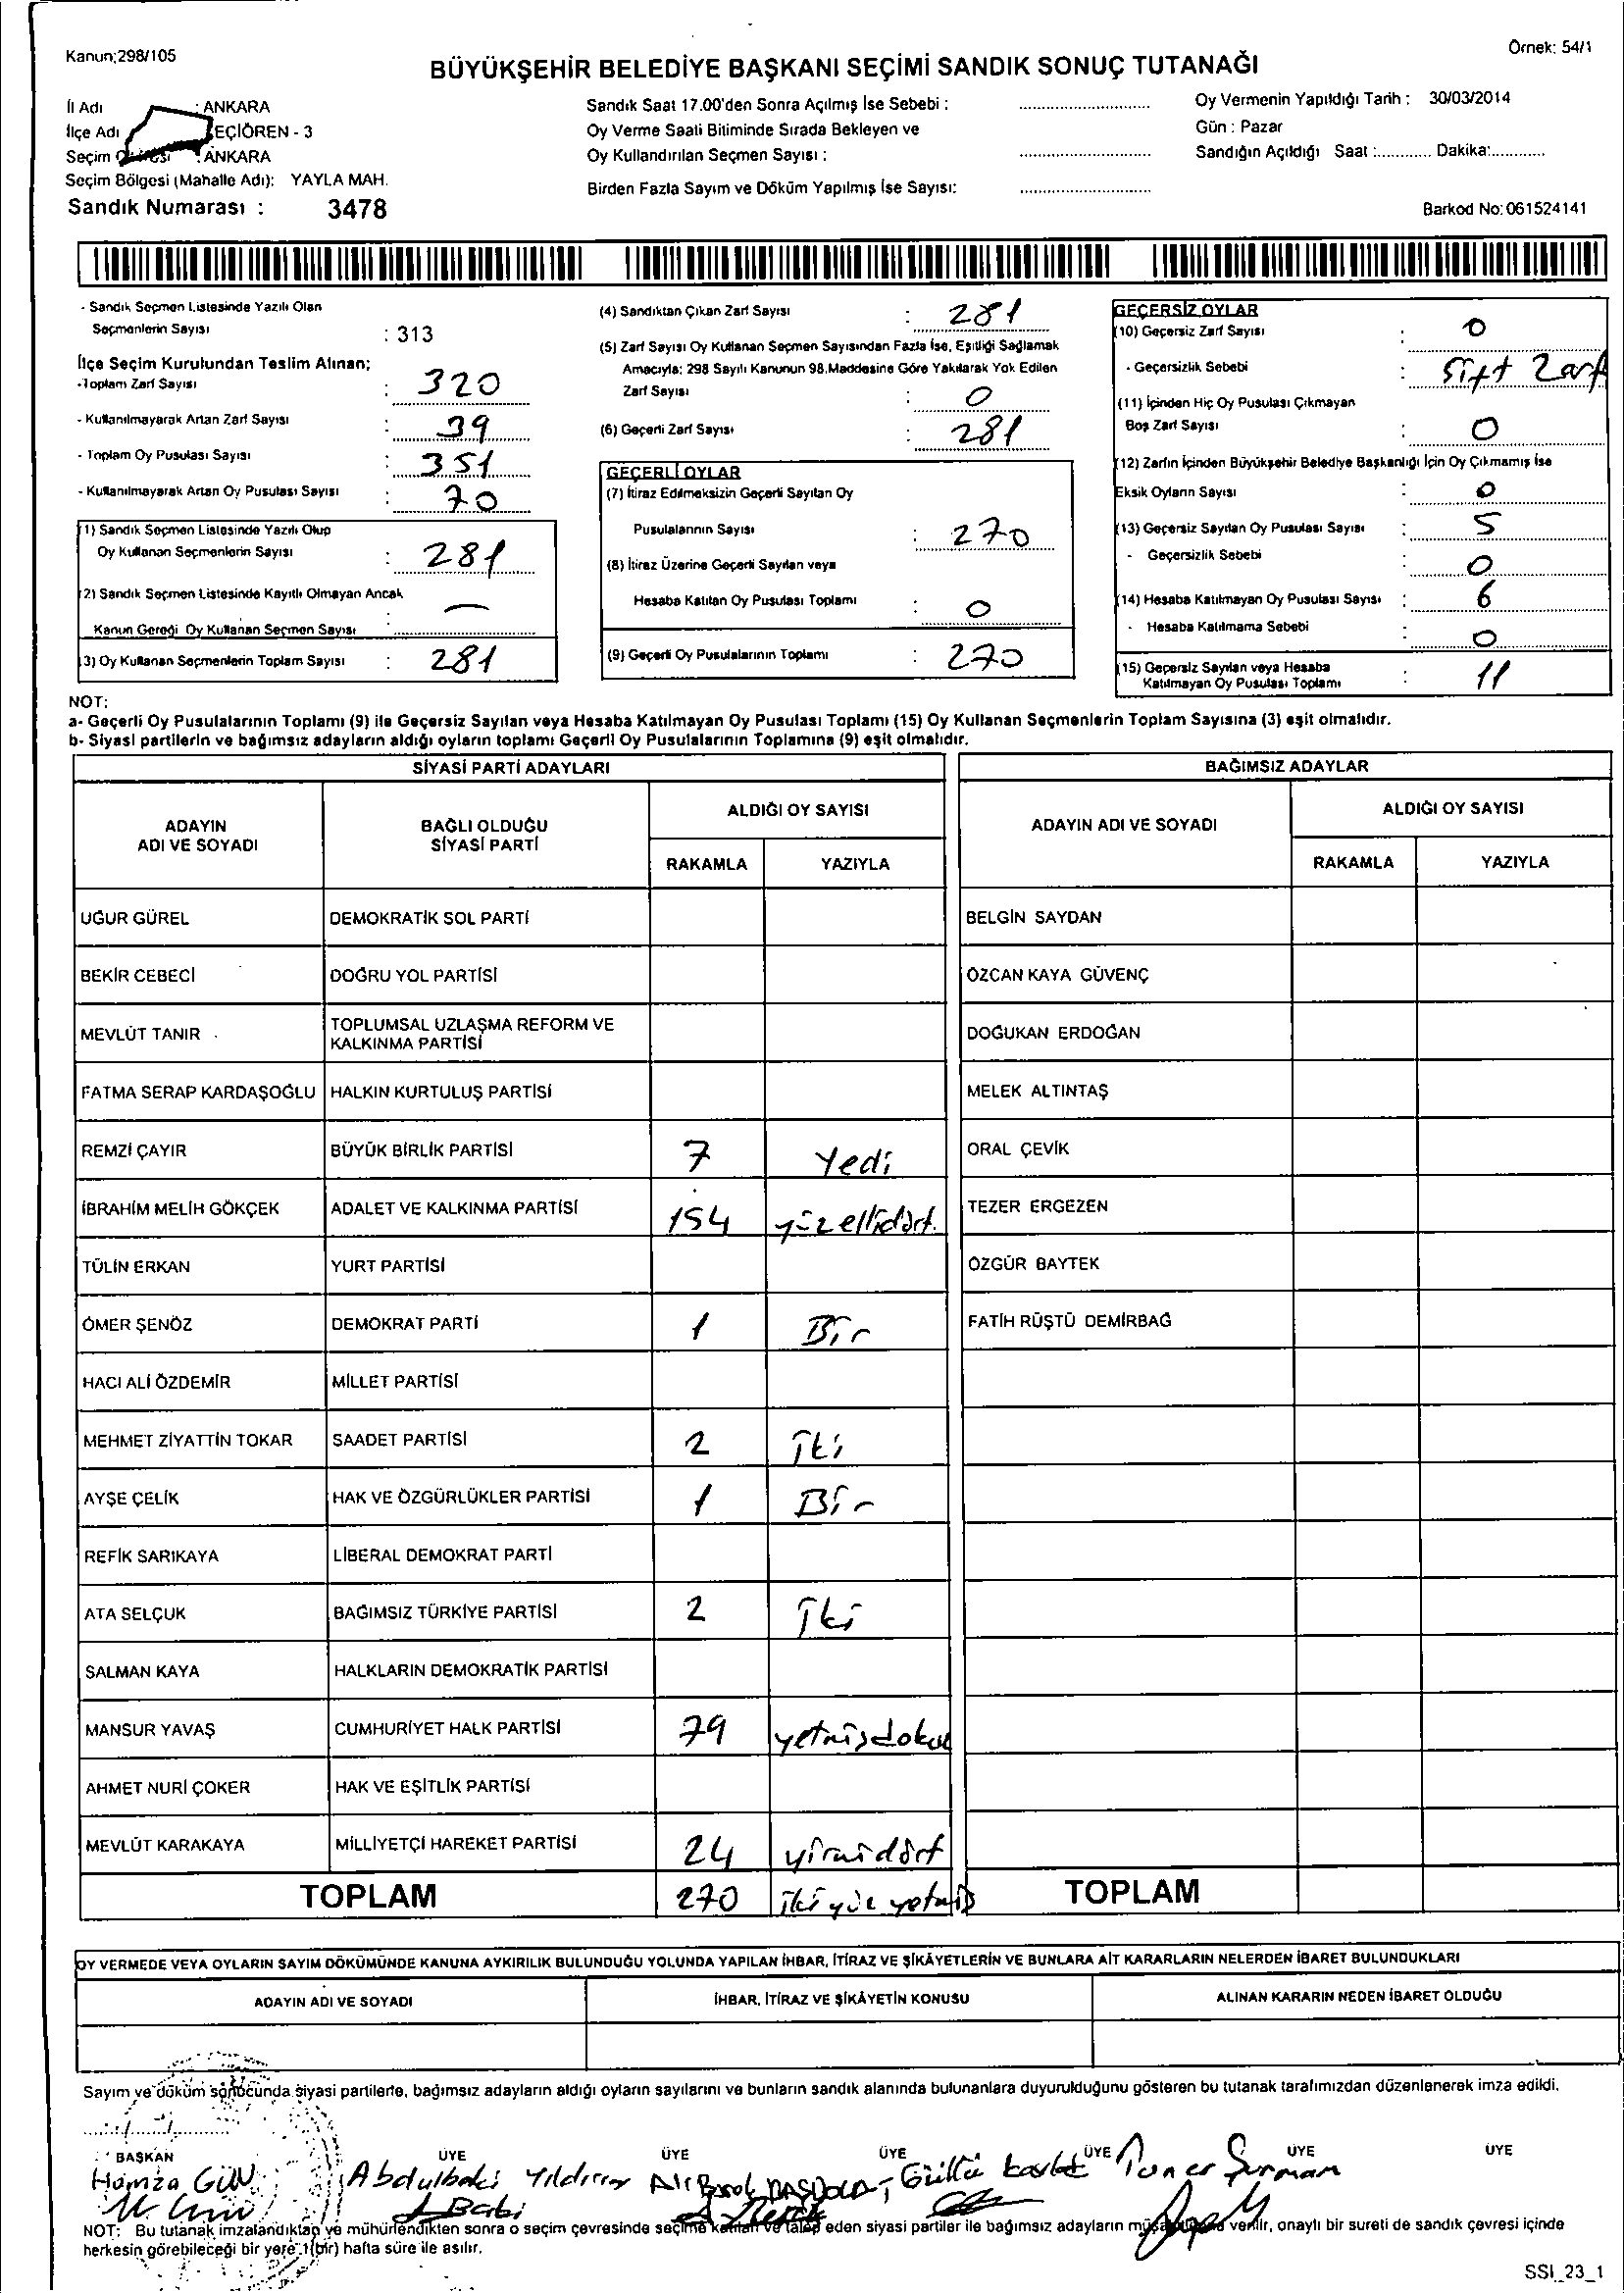 Kanun;298/105
Örnek: 54/1
BÜYÜKŞEHİR BELEDİYE BAŞKANI SEÇİMİ SANDIK SONUÇ TUTANAĞI
İl Adı : ANKARA
İlçe Adı EÇİÖREN - 3
Seçim : ANKARA
Seçim Bölgesi (Mahalle Adı): YAYLA MAH.
Sandık Numarası : 3478
Sandık Saat 17.00'den Sonra Açılmış İse Sebebi :
Oy Verme Saati Bitiminde Sırada Bekleyen ve
Oy Kullandırılan Seçmen Sayısı :
Birden Fazla Sayım ve Döküm Yapılmış İse Sayısı:
Oy Vermenin Yapıldığı Tarih : 30/03/2014
Gün : Pazar
Sandığın Açıldığı Saat :............ Dakika:............
Barkod No: 061524141
- Sandık Seçmen Listesinde Yazılı Olan
Seçmenlerin Sayısı : 313
İlçe Seçim Kurulundan Teslim Alınan;
-Toplam Zarf Sayısı : 320
- Kullanılmayarak Artan Zarf Sayısı : 39
- Toplam Oy Pusulası Sayısı : 351
- Kullanılmayarak Artan Oy Pusulası Sayısı : 70
(1) Sandık Seçmen Listesinde Yazılı Olup
Oy Kullanan Seçmenlerin Sayısı : 281
(2) Sandık Seçmen Listesinde Kayıtlı Olmayan Ancak
Kanun Gereği Oy Kullanan Seçmen Sayısı : —
(3) Oy Kullanan Seçmenlerin Toplam Sayısı : 281
(4) Sandıktan Çıkan Zarf Sayısı : 281
(5) Zarf Sayısı Oy Kullanan Seçmen Sayısından Fazla İse, Eşitliği Sağlamak
Amacıyla; 298 Sayılı Kanunun 98.Maddesine Göre Yakılarak Yok Edilen
Zarf Sayısı : 0
(6) Geçerli Zarf Sayısı : 281
GEÇERLİ OYLAR
(7) İtiraz Edilmeksizin Geçerli Sayılan Oy
Pusulalarının Sayısı : 270
(8) İtiraz Üzerine Geçerli Sayılan veya
Hesaba Katılan Oy Pusulası Toplamı : 0
(9) Geçerli Oy Pusulalarının Toplamı : 270
GEÇERSİZ OYLAR
(10) Geçersiz Zarf Sayısı : 0
- Geçersizlik Sebebi : Sift Zarf
(11) İçinden Hiç Oy Pusulası Çıkmayan
Boş Zarf Sayısı : 0
(12) Zarfın İçinden Büyükşehir Belediye Başkanlığı İçin Oy Çıkmamış İse
Eksik Oyların Sayısı : 0
(13) Geçersiz Sayılan Oy Pusulası Sayısı : 5
- Geçersizlik Sebebi : 0
(14) Hesaba Katılmayan Oy Pusulası Sayısı : 6
- Hesaba Katılmama Sebebi : 0
(15) Geçersiz Sayılan veya Hesaba
Katılmayan Oy Pusulası Toplamı : 11
NOT:
a- Geçerli Oy Pusulalarının Toplamı (9) ile Geçersiz Sayılan veya Hesaba Katılmayan Oy Pusulası Toplamı (15) Oy Kullanan Seçmenlerin Toplam Sayısına (3) eşit olmalıdır.
b- Siyasi partilerin ve bağımsız adayların aldığı oyların toplamı Geçerli Oy Pusulalarının Toplamına (9) eşit olmalıdır.
SİYASİ PARTİ ADAYLARI
ADAYIN ADI VE SOYADI
BAĞLI OLDUĞU SİYASİ PARTİ
ALDIĞI OY SAYISI
RAKAMLA YAZIYLA
UĞUR GÜREL DEMOKRATİK SOL PARTİ
BEKİR CEBECİ DOĞRU YOL PARTİSİ
MEVLÜT TANIR TOPLUMSAL UZLAŞMA REFORM VE
KALKINMA PARTİSİ
FATMA SERAP KARDAŞOĞLU HALKIN KURTULUŞ PARTİSİ
REMZİ ÇAYIR BÜYÜK BİRLİK PARTİSİ 7 Yedi
İBRAHİM MELİH GÖKÇEK ADALET VE KALKINMA PARTİSİ 154 yüzellidört
TÜLİN ERKAN YURT PARTİSİ
ÖMER ŞENÖZ DEMOKRAT PARTİ 1 Bir
HACI ALİ ÖZDEMİR MİLLET PARTİSİ
MEHMET ZİYATTİN TOKAR SAADET PARTİSİ 2 İki
AYŞE ÇELİK HAK VE ÖZGÜRLÜKLER PARTİSİ 1 Bir
REFİK SARIKAYA LİBERAL DEMOKRAT PARTİ
ATA SELÇUK BAĞIMSIZ TÜRKİYE PARTİSİ 2 İki
SALMAN KAYA HALKLARIN DEMOKRATİK PARTİSİ
MANSUR YAVAŞ CUMHURİYET HALK PARTİSİ 79 yetmişdokuz
AHMET NURİ ÇOKER HAK VE EŞİTLİK PARTİSİ
MEVLÜT KARAKAYA MİLLİYETÇİ HAREKET PARTİSİ 24 yirmidört
TOPLAM 270 İkiyüz yetmiş
BAĞIMSIZ ADAYLAR
ADAYIN ADI VE SOYADI
ALDIĞI OY SAYISI
RAKAMLA YAZIYLA
BELGİN SAYDAN
ÖZCAN KAYA GÜVENÇ
DOĞUKAN ERDOĞAN
MELEK ALTINTAŞ
ORAL ÇEVİK
TEZER ERGEZEN
ÖZGÜR BAYTEK
FATİH RÜŞTÜ DEMİRBAĞ
TOPLAM
OY VERMEDE VEYA OYLARIN SAYIM DÖKÜMÜNDE KANUNA AYKIRILIK BULUNDUĞU YOLUNDA YAPILAN İHBAR, İTİRAZ VE ŞİKÂYETLERİN VE BUNLARA AİT KARARLARIN NELERDEN İBARET BULUNDUKLARI
ADAYIN ADI VE SOYADI İHBAR, İTİRAZ VE ŞİKÂYETİN KONUSU ALINAN KARARIN NEDEN İBARET OLDUĞU
Sayım ve döküm sonucunda siyasi partilerle, bağımsız adayların aldığı oyların sayılarını ve bunların sandık alanında bulunanlara duyurulduğunu gösteren bu tutanak tarafımızdan düzenlenerek imza edildi.
BAŞKAN ÜYE ÜYE ÜYE ÜYE ÜYE ÜYE
Hamza GÜN Abdulbaki Yıldırım
NOT: Bu tutanak imzalandıktan ve mühürlendikten sonra o seçim çevresinde seçime katılan ve talep eden siyasi partiler ile bağımsız adayların verilir, onaylı bir sureti de sandık çevresi içinde
herkesin görebileceği bir yere 1(bir) hafta süre ile asılır.
SSI_23_1